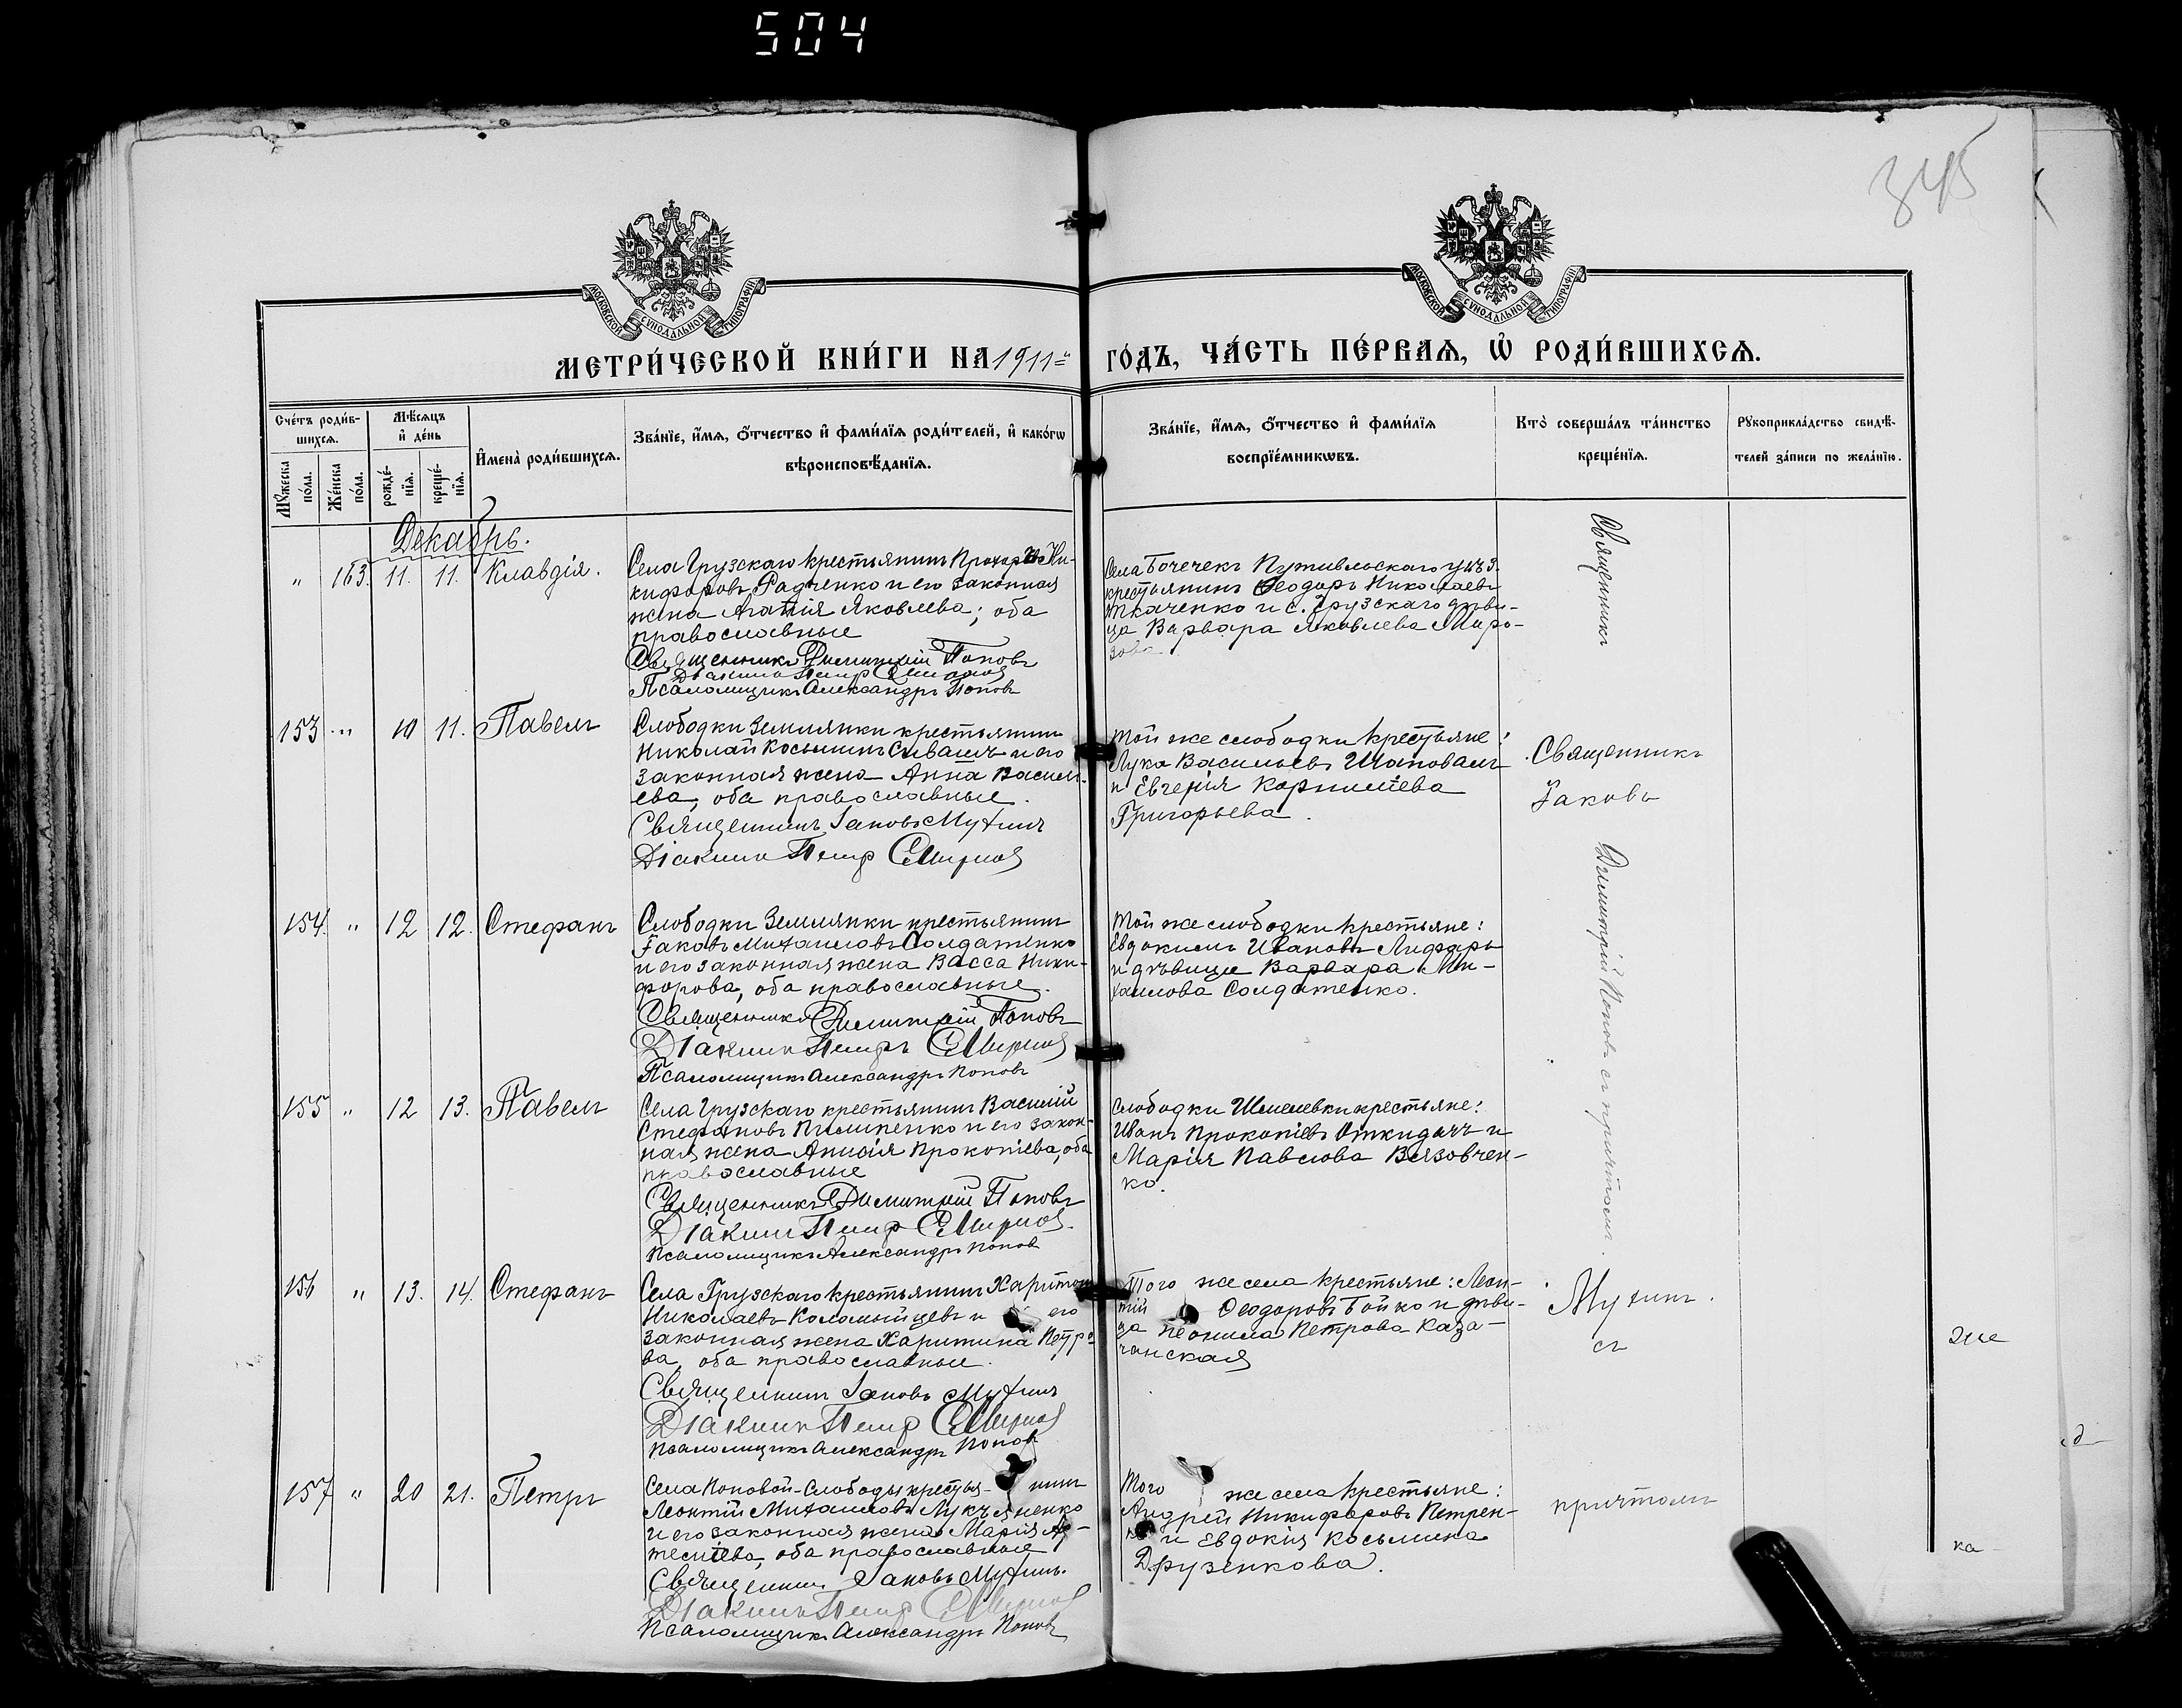 504
345
МОСКОВСКОЙ СУНОДАЛЬНОЙ ТИПОГРАФІИ
МОСКОВСКОЙ СУНОДАЛЬНОЙ ТИПОГРАФІИ
МЕТРИ́ЧЕСКОЙ КНИ́ГИ НА 1911й ГО́ДЪ, ЧА́СТЬ ПЕ́РВАѦ, Ѡ҆ РОДИ́ВШИХСѦ.
Сче́тъ роди́в-
шихсѧ.
Мѣ́сѧцъ
и҆ де́нь
И҆мена̀ роди́вшихсѧ.
Зва́нїе, и҆́мѧ, ѻ҆́тчество и҆ фами́лїѧ роди́телей, и҆ како́гѡ
вѣроисповѣ́данїѧ.
Зва́нїе, и҆́мѧ, ѻ҆́тчество и҆ фами́лїѧ
воспрїе́мникѡвъ.
Кто̀ соверша́лъ та́инство
креще́нїѧ.
Рꙋкоприкла́дство свидѣ́-
телей за́писи по жела́нїю.
Мꙋ́жеска
по́ла.
Же́нска
по́ла.
рожде́-
нїѧ.
креще́-
нїѧ.
Декабрь.
" 163. 11. 11. Клавдія.
Села Грузскаго крестьянинъ Прохоръ Ни-
кифоровъ Радченко и его законная
жена Агапія Яковлева; оба
православные
Священникъ Димитрій Поповъ
Діаконъ Петръ Смирнов
Псаломщикъ Александръ Попов
Села Бочечекъ Путивльскаго уѣз.
крестьянинъ Ѳеодоръ Николаевъ
Ткаченко и с. Грузскаго дѣви-
ца Варвара Яковлева Моро-
зова
153 " 10 11. Павелъ
Слободки Землянки крестьянинъ
Николай Косьминъ Сивашъ и его
законная жена Анна Василь-
ева, оба православные.
Священникъ Іаковъ Мухинъ
Діаконъ Петръ Смирнов
Той же слободки крестьяне:
Лука Васильевъ Шаповалъ
и Евгенія Корнилiева
Григорьева.
154. " 12 12. Стефанъ
Слободки Землянки крестьянинъ
Іаковъ Михаиловъ Солдатенко
и его законная жена Васса Ники-
форова, оба православные.
Священникъ Димитрій Поповъ
Діаконъ Петръ Смирнов
Псаломщикъ Александръ Поповъ
Той же слободки крестьяне:
Евдокимъ Ивановъ Лифарь
и дѣвица Варвара Ми-
хаилова Солдатенко.
155 " 12 13. Павелъ
Села Грузскаго крестьянинъ Василій
Стефановъ Пилипенко и его закон-
ная жена Анисія Прокопіева, оба
православные
Священникъ Димитрій Поповъ
Діаконъ Петръ Смирнов
Псаломщикъ Александръ Попов
Слободки Шмелевки крестьяне:
Иванъ Прокопіевъ Откидачъ и
Марія Павлова Вязовчен-
ко.
156 " 13. 14. Стефанъ
Села Грузскаго крестьянинъ Харитонъ
Николаевъ Коломыйцевъ и его
законная жена Харитина Петро-
ва, оба православные.
Священникъ Іаковъ Мухинъ
Діаконъ Петръ Смирнов
Псаломщикъ Александръ Поповъ
Того же села крестьяне: Леон-
тій Ѳеодоровъ Бойко и дѣви-
ца Неонила Петрова Каза-
чанская
157 " 20 21. Петръ
Села Поповой-Слободы крестья нинъ
Леонтій Михаиловъ Лукьяненко
и его законная жена Марія Ар-
темiева, оба православные
Священникъ Іаковъ Мухинъ.
Діаконъ Петръ Смирнов
Псаломщикъ Александръ Поповъ
Того же села крестьяне:
Андрей Никифоровъ Петрен-
ко и Евдокія Косьмина
Друзенкова.
Священникъ
Димитрій Поповъ съ причтомъ.
Священникъ
Іаковъ
Мухинъ.
съ
причтомъ
же
ка